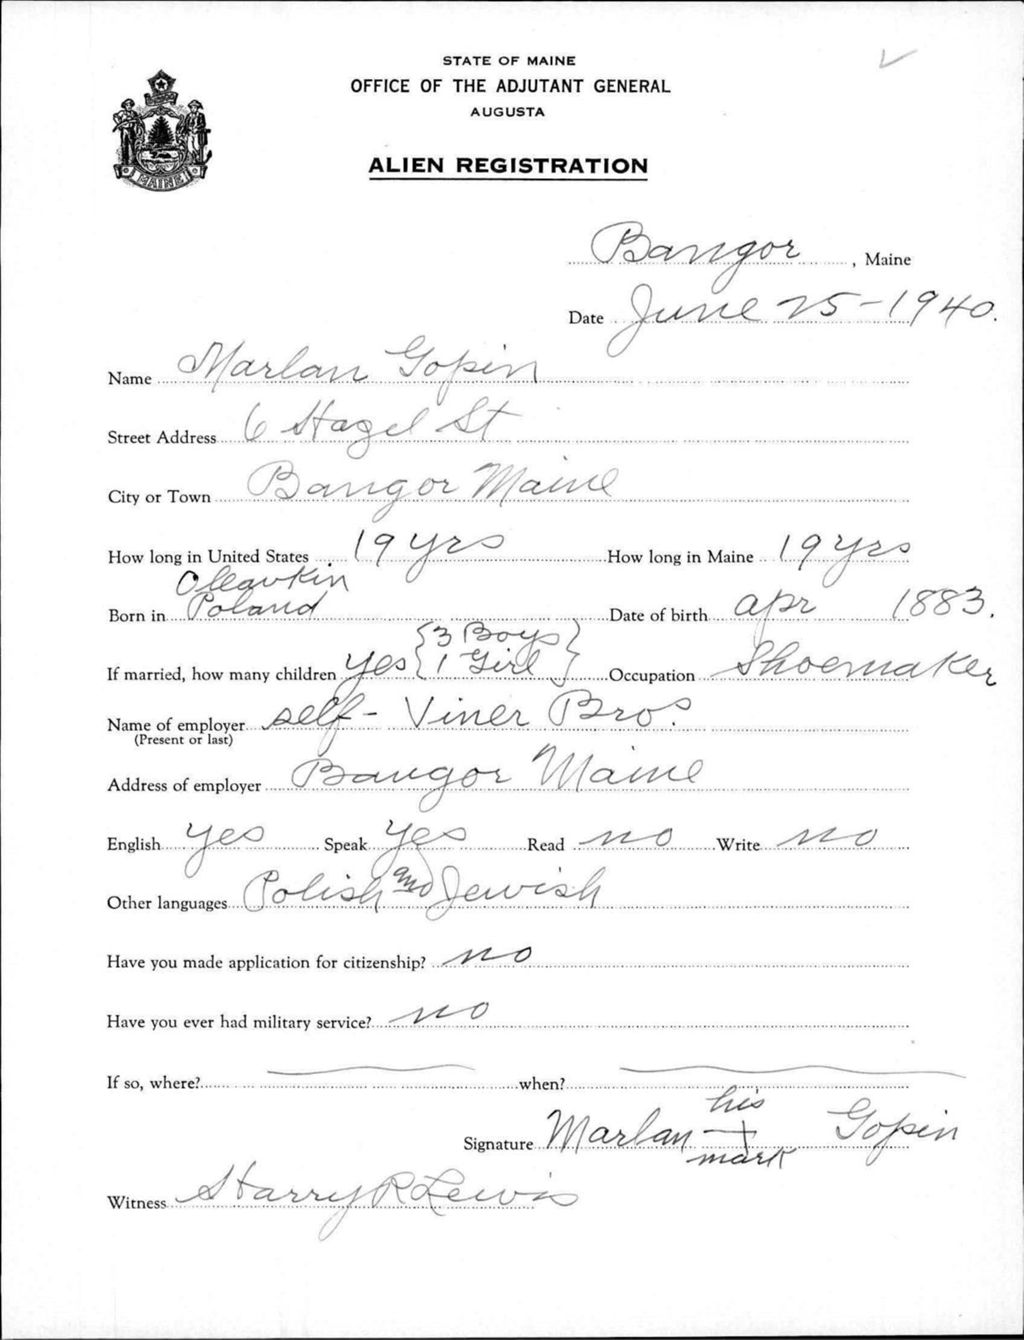 STATE OF MAINE
OFFICE OF THE ADJUTANT GENERAL
AUGUSTA
ALIEN REGISTRATION
MAINE
Bangor, Maine
Date June 25-1940.
Name Marlan Gopin
Street Address 6 Hazel St
City or Town Bangor Maine
How long in United States 19 yrs How long in Maine 19 yrs
Born in Poland Date of birth Apr 1883.
If married, how many children yes {3 Boys 1 Girl} Occupation Shoemaker
Name of employer self - Viner Bros.
(Present or last)
Address of employer Bangor Maine
English yes Speak yes Read no Write no
Other languages Polish and Jewish
Have you made application for citizenship? no
Have you ever had military service? no
If so, where? when?
his
Signature Marlan + Gopin
mark
Witness Harry R Lewis